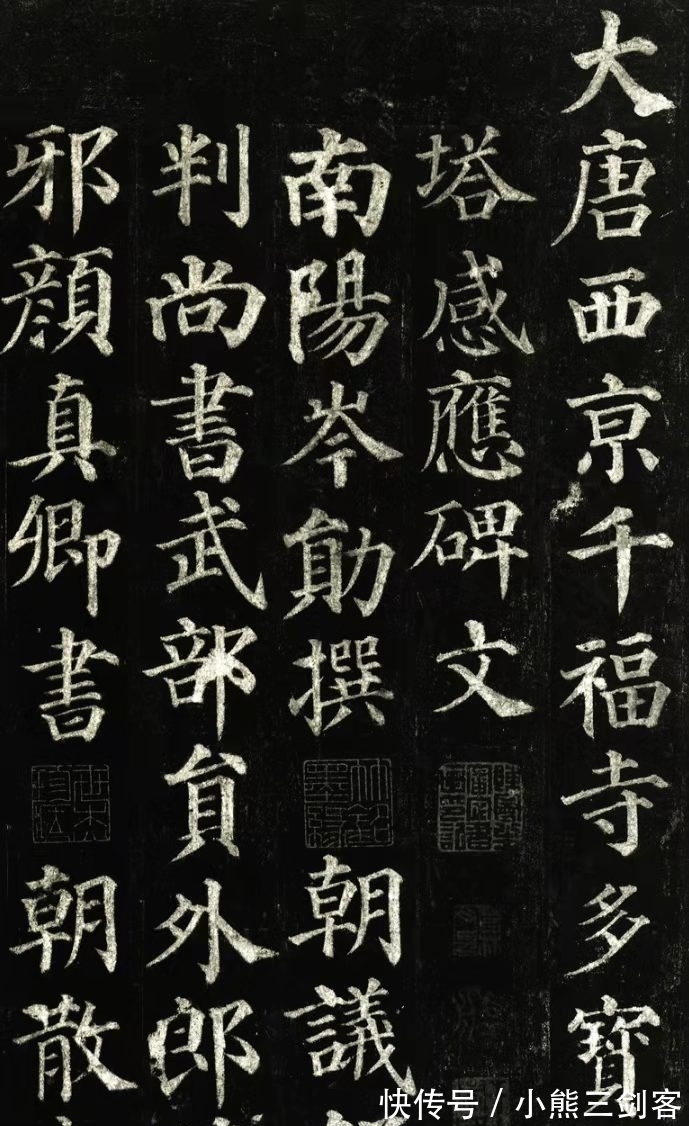 大唐西京千福寺多寶
塔感應碑文
南陽岑勛撰 朝議
判尚書武部員外郎
邪顏真卿書 朝散
快传号 / 小熊三剑客